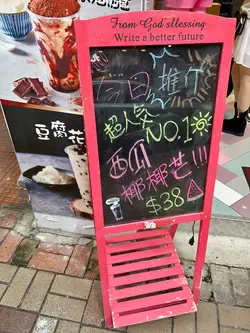 From God'sllessing
Write a better future
今日推介
超人氣
NO.1
西瓜
椰椰芒!!!
$38
豆腐花